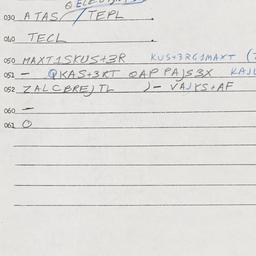 030 ATAS / TEPL
040 TECL
050 MAXT1SKUS+3R KUS+3RG1MAXT
051 - QKAS+3KT QAP PAJS3X
052 ZALCBREJTL )- VAJKS+AF
060 -
061 O